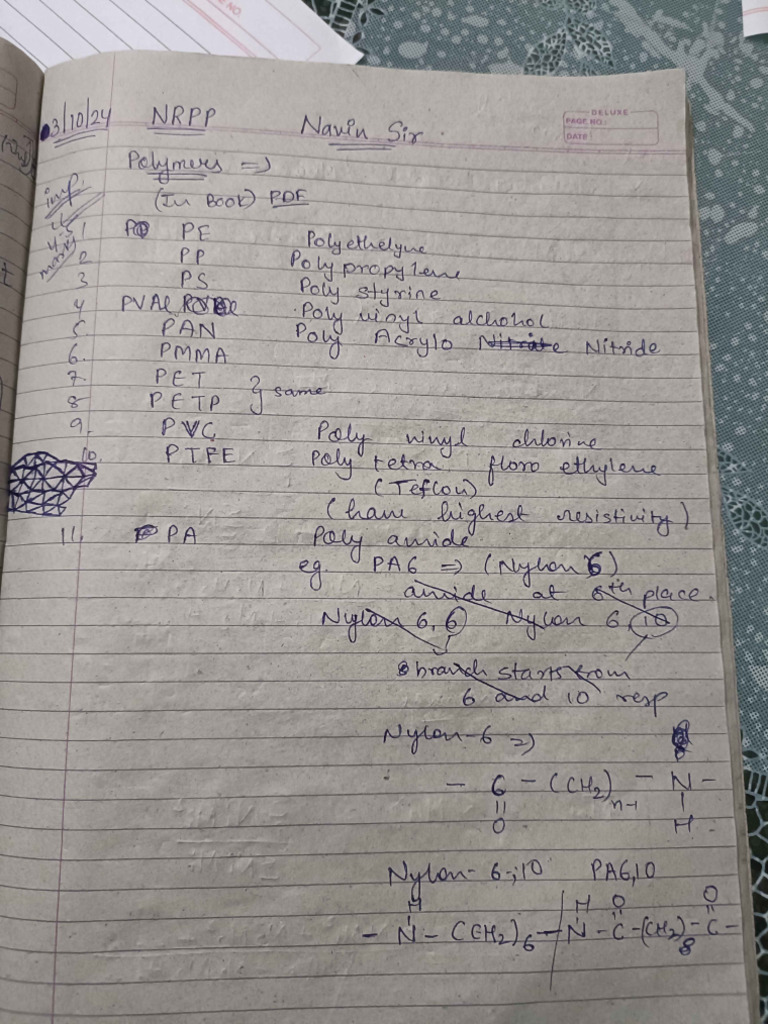 3/10/24 NRPP Navin Sir.
DELUXE
PAGE NO.:
DATE:
Polymers =>
(In Book) PDF
imp.
4-5
marks
1 PE Polyethelyne
2 PP Polypropylene
3 PS Poly styrine
4 PVAl Poly vinyl alchohol
5 PAN Poly Acrylo Nitrate Nitride
6. PMMA
7. PET } same
8 PETP
9. PVC Poly vinyl chlorine
10. PTFE Poly tetra floro ethylene
(Teflon)
(have highest resistivity)
11. PA Poly amide.
eg. PA6 => (Nylon 6)
amide at 6th place.
Nylon 6,6 Nylon 6,10
branch starts from
6 and 10 resp
Nylon-6 =>
- C - (CH2)n-1 - N -
|| |
O H
Nylon-6,10 PA6,10
H H O O
- N - (CH2)6 - N - C - (CH2)8 - C -